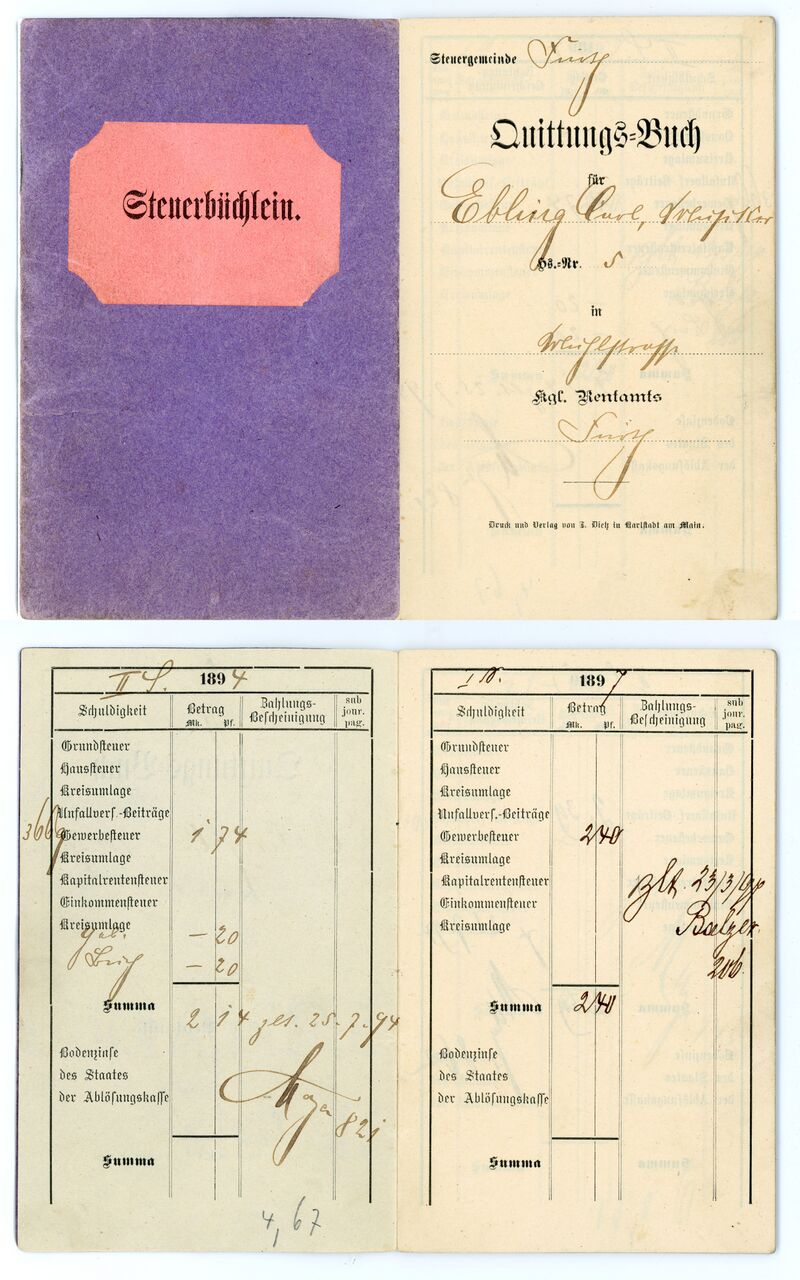 Steuerbüchlein.
Steuergemeinde Fürth
Quittungs-Buch
für
Ebling Carl, Musiker
Hs.-Nr. 5
in
Mühlstrasse
Kgl. Rentamts
Fürth
Druck und Verlag von Z. Dietz in Karlstadt am Main.
II S. 1894
Schuldigkeit Betrag Zahlungs-Bescheinigung sub jour. pag.
Mk. Pf.
Grundsteuer
Haussteuer
Kreisumlage
Unfallvers.-Beiträge
3669 Gewerbesteuer 1 74
Kreisumlage
Kapitalrentensteuer
Einkommensteuer
Kreisumlage
Geb. — 20
Buch — 20
Summa 2 14 zlt. 25.7.94
Bodenzinse
des Staates
der Ablösungskasse
821
Summa
4,67
1897
Schuldigkeit Betrag Zahlungs-Bescheinigung sub jour. pag.
Mk. Pf.
Grundsteuer
Haussteuer
Kreisumlage
Unfallvers.-Beiträge
Gewerbesteuer 2 40
Kreisumlage
Kapitalrentensteuer zlt. 23/3/97
Einkommensteuer
Kreisumlage Balzer.
206.
Summa 2 40
Bodenzinse
des Staates
der Ablösungskasse
Summa